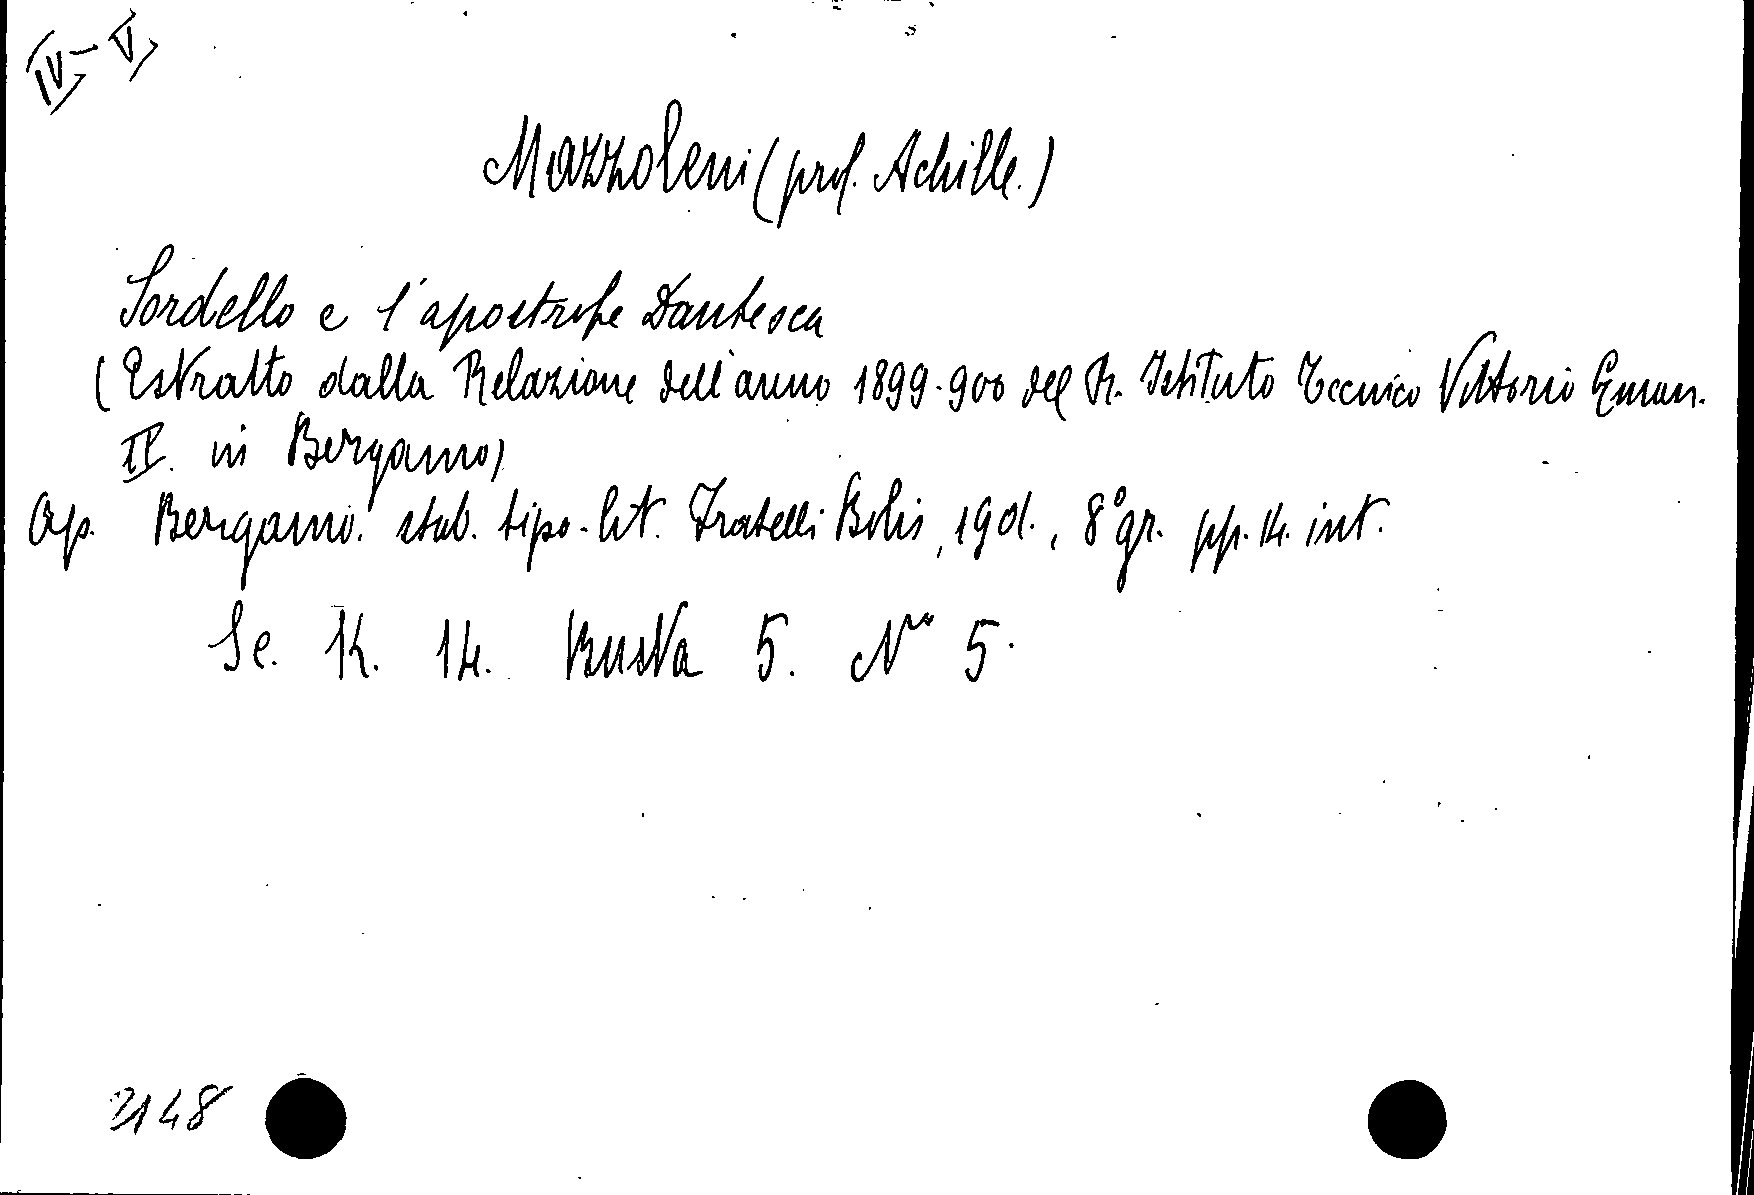 IV-V
Mazzoleni (prof. Achille.)
Sordello e l'apostrofe Dantesca
(Estratto dalla Relazione dell'anno 1899-900 del R. Istituto Tecnico Vittorio Eman.
II. in Bergamo)
Op. Bergamo. stab. tipo-lit. Fratelli Bolis, 1901., 8° gr. pp. 14. int.
Se. K. 14. Busta 5. N° 5.
3148